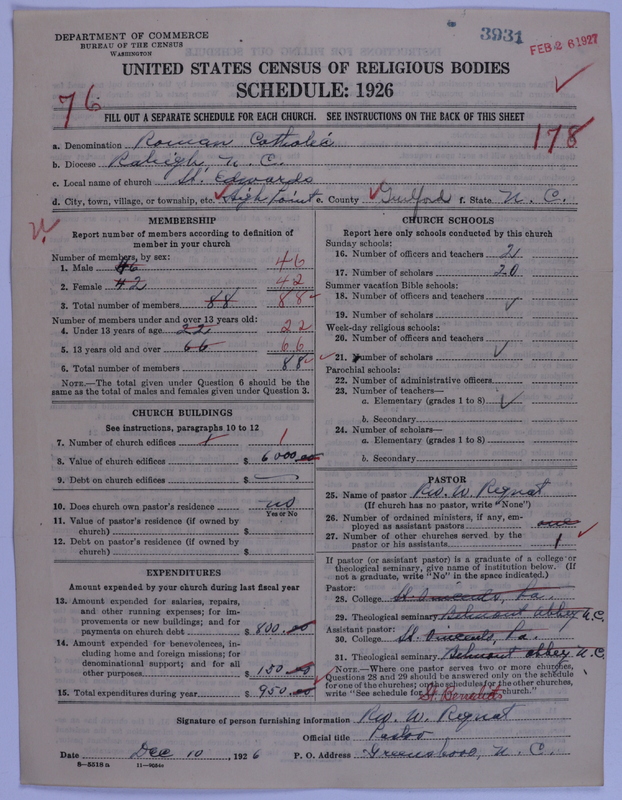 DEPARTMENT OF COMMERCE
BUREAU OF THE CENSUS
WASHINGTON
3931
FEB 26 1927
UNITED STATES CENSUS OF RELIGIOUS BODIES
SCHEDULE: 1926
76
FILL OUT A SEPARATE SCHEDULE FOR EACH CHURCH. SEE INSTRUCTIONS ON THE BACK OF THIS SHEET
178
a. Denomination Roman Catholic
b. Diocese Raleigh, N. C.
c. Local name of church St. Edwards
d. City, town, village, or township, etc. High Point e. County Guilford f. State N. C.
MEMBERSHIP
Report number of members according to definition of
member in your church
Number of members, by sex:
1. Male 46 46
2. Female 42 42
3. Total number of members 88 88
Number of members under and over 13 years old:
4. Under 13 years of age 22 22
5. 13 years old and over 66 66
6. Total number of members 88
NOTE.—The total given under Question 6 should be the
same as the total of males and females given under Question 3.
CHURCH BUILDINGS
See instructions, paragraphs 10 to 12
7. Number of church edifices 1 1
8. Value of church edifices $ 6000.00
9. Debt on church edifices $
10. Does church own pastor's residence no
Yes or No
11. Value of pastor's residence (if owned by
church) $
12. Debt on pastor's residence (if owned by
church) $
EXPENDITURES
Amount expended by your church during last fiscal year
13. Amount expended for salaries, repairs,
and other running expenses; for im-
provements or new buildings; and for
payments on church debt $ 800.00
14. Amount expended for benevolences, in-
cluding home and foreign missions; for
denominational support; and for all
other purposes $ 150.00
15. Total expenditures during year $ 950.00
CHURCH SCHOOLS
Report here only schools conducted by this church
Sunday schools:
16. Number of officers and teachers 2
17. Number of scholars 20
Summer vacation Bible schools:
18. Number of officers and teachers
19. Number of scholars
Week-day religious schools:
20. Number of officers and teachers
21. Number of scholars
Parochial schools:
22. Number of administrative officers
23. Number of teachers—
a. Elementary (grades 1 to 8)
b. Secondary
24. Number of scholars—
a. Elementary (grades 1 to 8)
b. Secondary
PASTOR
25. Name of pastor Rev. W. Regnat
(If church has no pastor, write "None")
26. Number of ordained ministers, if any, em-
ployed as assistant pastors one
27. Number of other churches served by the
pastor or his assistants 1
If pastor (or assistant pastor) is a graduate of a college or
theological seminary, give name of institution below. (If
not a graduate, write "No" in the space indicated.)
Pastor:
28. College St. Vincents, Pa.
29. Theological seminary Belmont Abbey N.C.
Assistant pastor:
30. College St. Vincents, Pa.
31. Theological seminary Belmont Abbey N.C.
NOTE.—Where one pastor serves two or more churches,
Questions 28 and 29 should be answered only on the schedule
for one of the churches; on the schedules for the other churches,
write "See schedule for St. Benedicts church."
Signature of person furnishing information Rev. W. Regnat
Official title Pastor
Date Dec 10, 1926 P. O. Address Greensboro, N. C.
8—5518 a